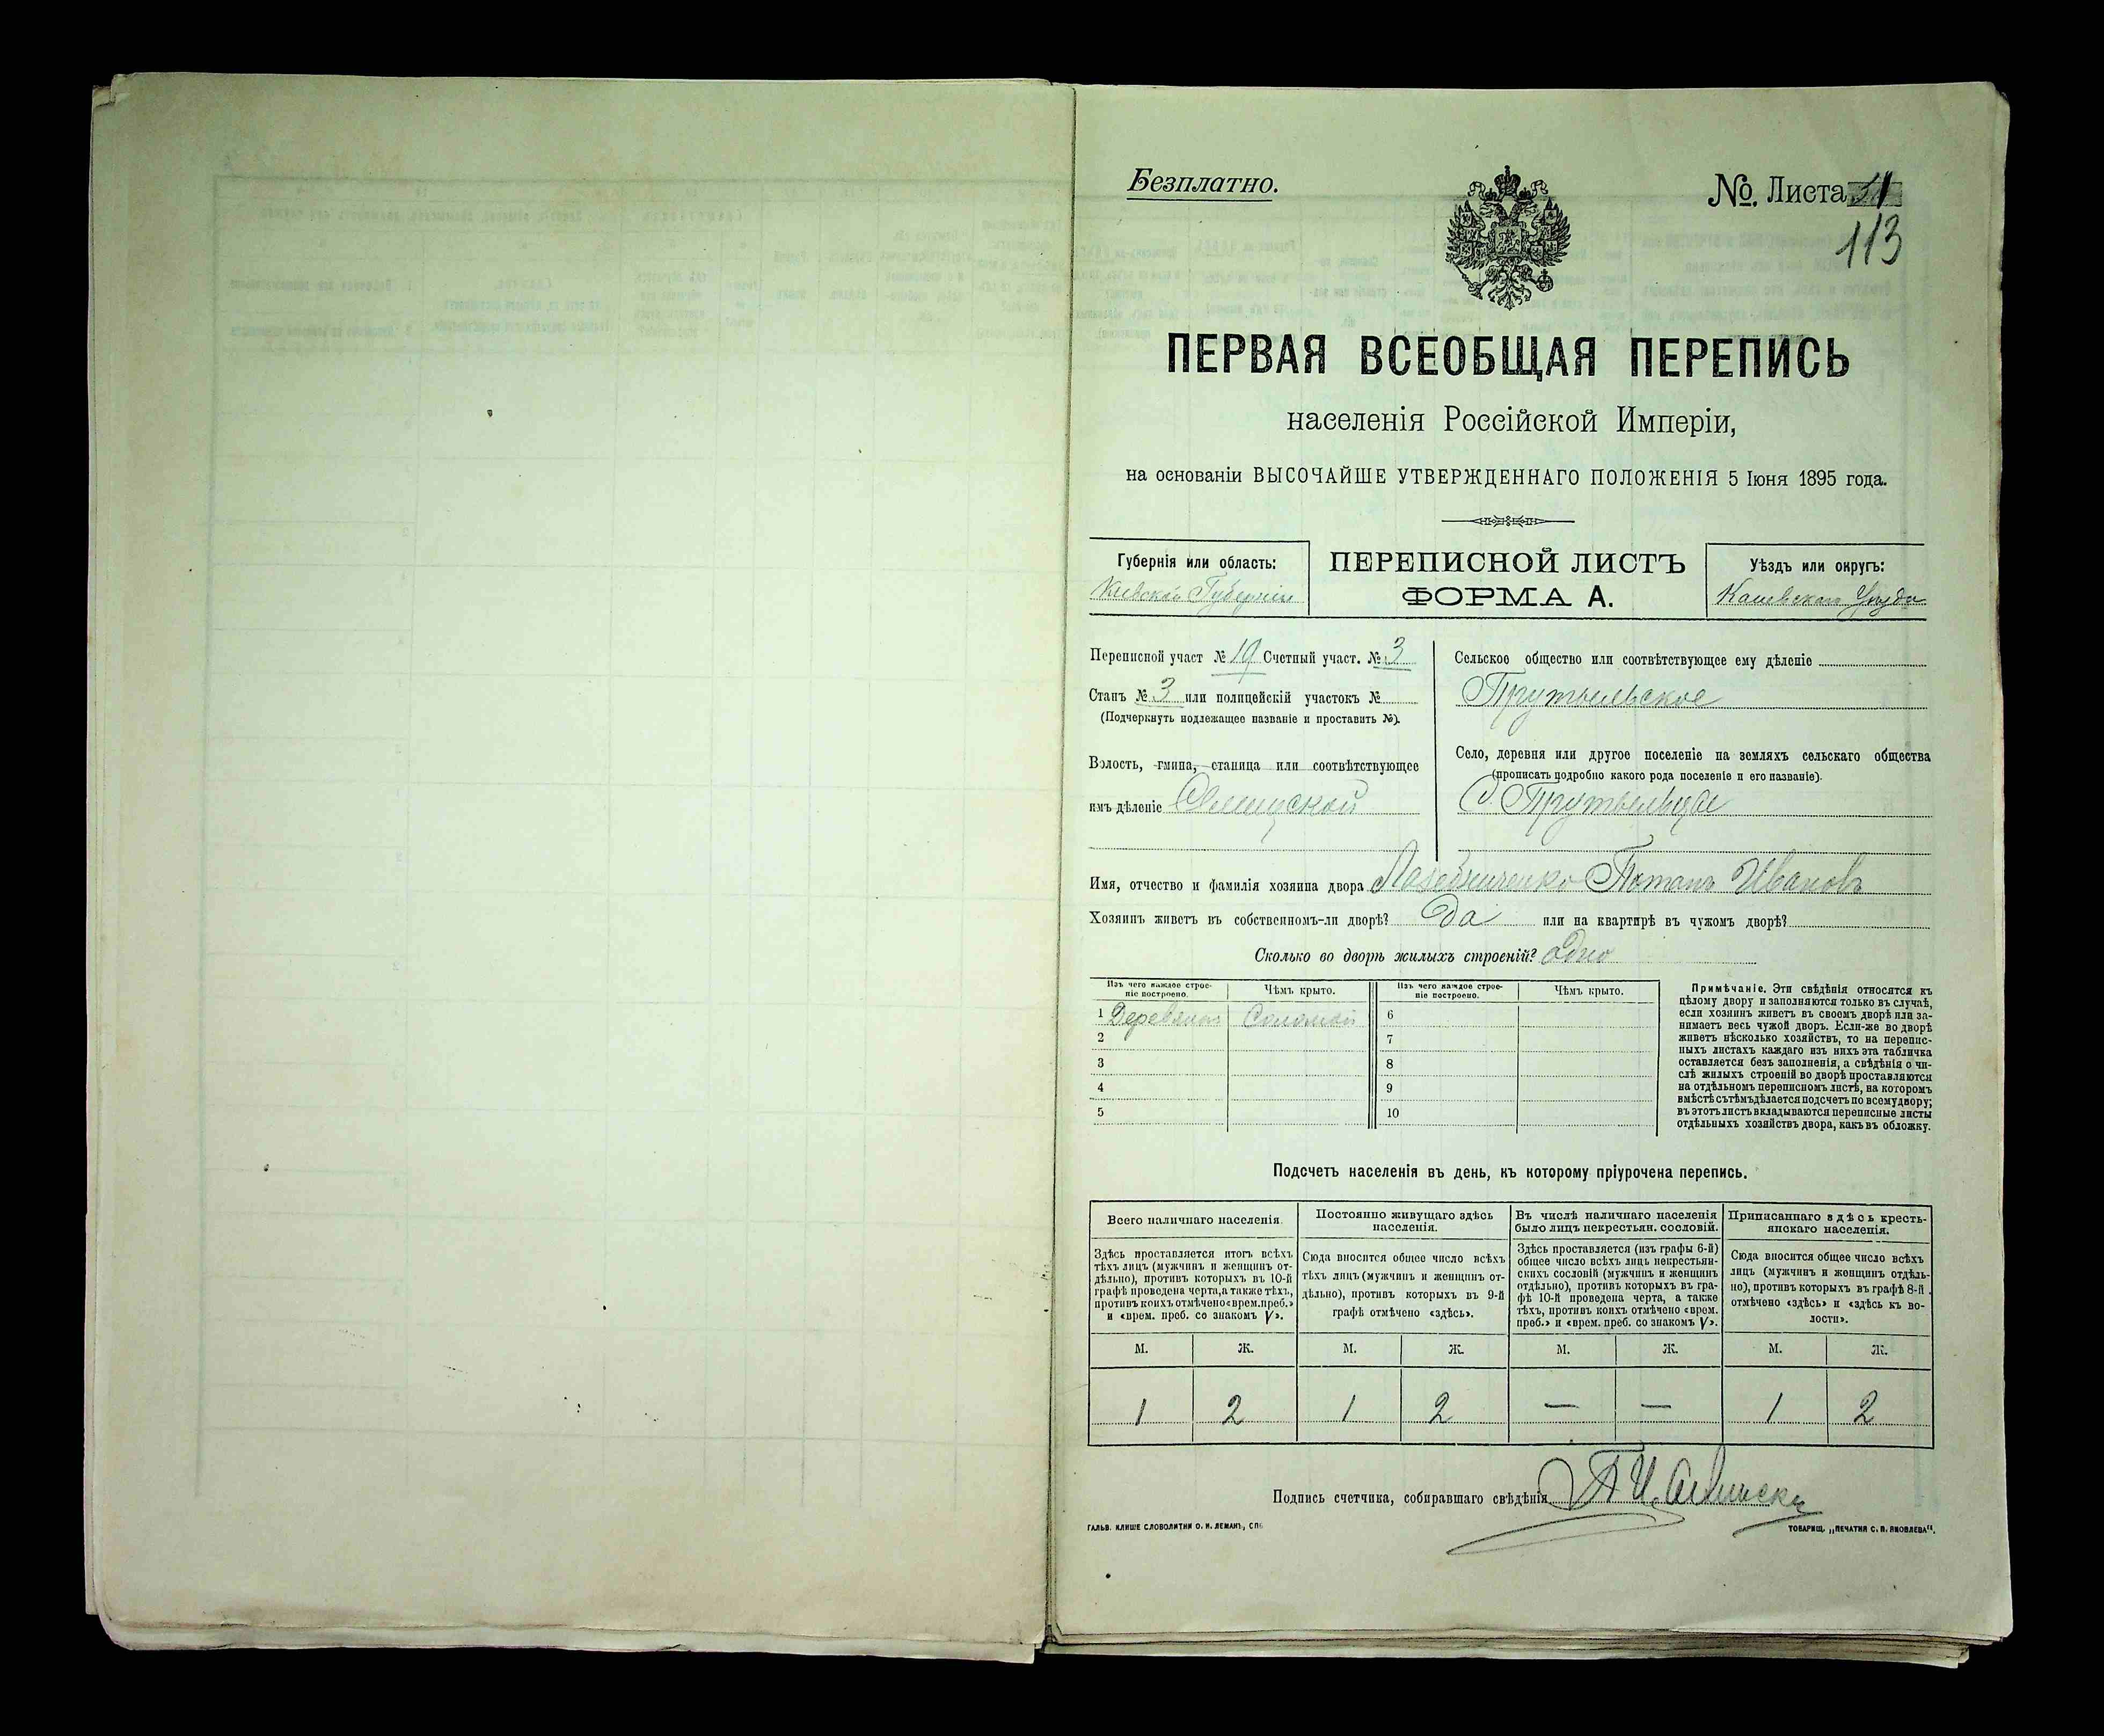 Безплатно.
№. Листа 51
113
ПЕРВАЯ ВСЕОБЩАЯ ПЕРЕПИСЬ
населенія Россійской Имперіи,
на основаніи ВЫСОЧАЙШЕ УТВЕРЖДЕННАГО ПОЛОЖЕНІЯ 5 Іюня 1895 года.
Губернія или область:
Кіевской Губерніи
ПЕРЕПИСНОЙ ЛИСТЪ
ФОРМА А.
Уѣздъ или округъ:
Уѣзда
Переписной участ № 19 Счетный участ. № 3
Станъ № 3 или полицейскій участокъ №
(Подчеркнуть подлежащее названіе и проставить №).
Волость, гмина, станица или соотвѣтствующее
имъ дѣленіе
Сельское общество или соотвѣтствующее ему дѣленіе
Прутыльское
Село, деревня или другое поселеніе на земляхъ сельскаго общества
(прописать подробно какого рода поселеніе и его названіе).
Имя, отчество и фамилія хозяина двора Потапъ Ивановъ
Хозяинъ живетъ въ собственномъ-ли дворѣ? Да или на квартирѣ въ чужомъ дворѣ?
Сколько во дворѣ жилыхъ строеній? Одно
Изъ чего каждое строе-
ніе построено.
Чѣмъ крыто.
Изъ чего каждое строе-
ніе построено.
Чѣмъ крыто.
1 Соломой 6
2 7
3 8
4 9
5 10
Примѣчаніе. Эти свѣдѣнія относятся къ
цѣлому двору и заполняются только въ случаѣ,
если хозяинъ живетъ въ своемъ дворѣ или за-
нимаетъ весь чужой дворъ. Если-же во дворѣ
живетъ нѣсколько хозяйствъ, то на перепис-
ныхъ листахъ каждаго изъ нихъ эта табличка
оставляется безъ заполненія, а свѣдѣнія о чи-
слѣ жилыхъ строеній во дворѣ проставляются
на отдѣльномъ переписномъ листѣ, на которомъ
вмѣстѣ съ тѣмъ дѣлается подсчетъ по всему двору;
въ этотъ листъ вкладываются переписные листы
отдѣльныхъ хозяйствъ двора, какъ въ обложку.
Подсчетъ населенія въ день, къ которому пріурочена перепись.
Всего наличнаго населенія.
Здѣсь проставляется итогъ всѣхъ
тѣхъ лицъ (мужчинъ и женщинъ от-
дѣльно), противъ которыхъ въ 10-й
графѣ проведена черта, а также тѣхъ,
противъ коихъ отмѣчено «врем. преб.»
и «врем. преб. со знакомъ V».
Постоянно живущаго здѣсь
населенія.
Сюда вносится общее число всѣхъ
тѣхъ лицъ (мужчинъ и женщинъ от-
дѣльно), противъ которыхъ въ 9-й
графѣ отмѣчено «здѣсь».
Въ числѣ наличнаго населенія
было лицъ некрестьян. сословій.
Здѣсь проставляется (изъ графы 6-й)
общее число всѣхъ лицъ некрестьян-
скихъ сословій (мужчинъ и женщинъ
отдѣльно), противъ которыхъ въ гра-
фѣ 10-й проведена черта, а также
тѣхъ, противъ коихъ отмѣчено «врем.
преб.» и «врем. преб. со знакомъ V».
Приписаннаго здѣсь кресть-
янскаго населенія.
Сюда вносится общее число всѣхъ
лицъ (мужчинъ и женщинъ отдѣль-
но), противъ которыхъ въ графѣ 8-й
отмѣчено «здѣсь» и «здѣсь къ во-
лости».
М. Ж. М. Ж. М. Ж. М. Ж.
1 2 1 2 — — 1 2
Подпись счетчика, собиравшаго свѣдѣнія
ГАЛЬВ. КЛИШЕ СЛОВОЛИТНИ О. И. ЛЕМАНЪ, СПБ
ТОВАРИЩ. „ПЕЧАТНЯ С. П. ЯКОВЛЕВА“.